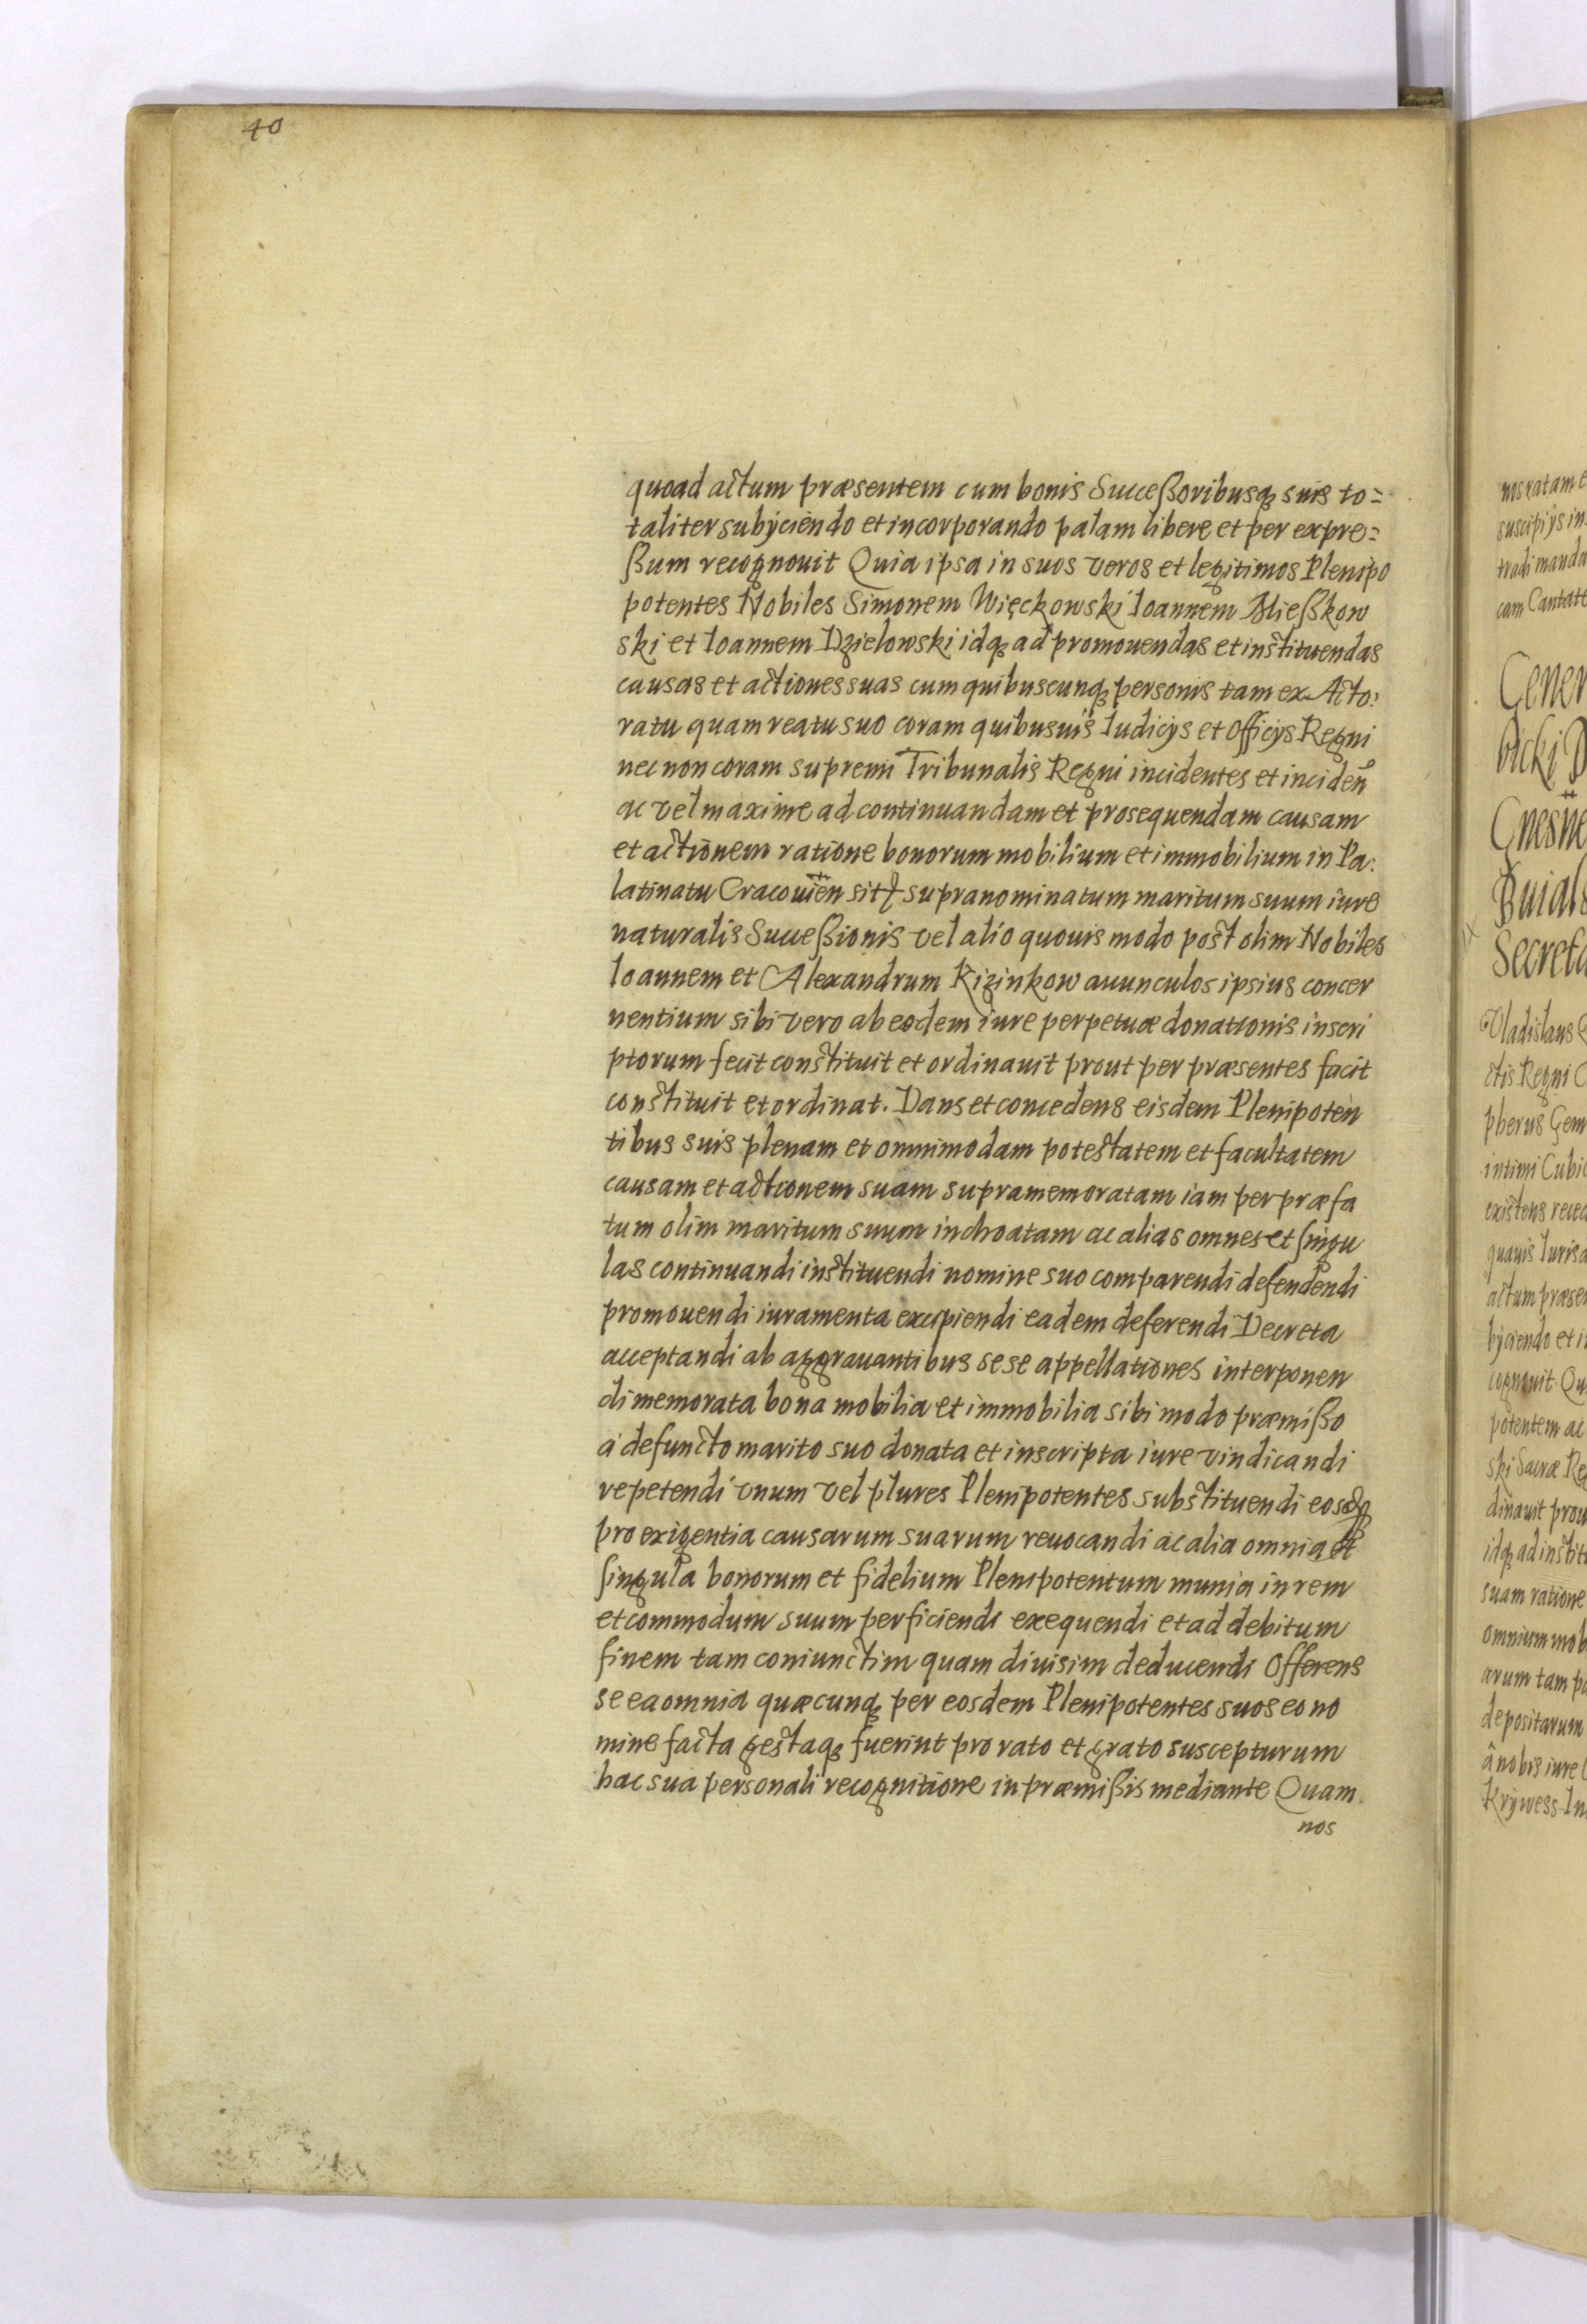 40
quoad actum præsentem cum bonis Succeßoribusq suis to=
taliter subÿciendo et incorporando palam libere et per expre=
ßum recognouit Quia ipsa in suos veros et legitimos Plenipo
potentes Nobiles Simonem Więckowski Ioannem Mießkow
ski et Ioannem Dzielowski idq ad promouendas et instituendas
causas et actiones suas cum quibuscunq personis tam ex Acto:
ratu quam reatu suo coram quibusuis Iudicÿs et Officÿs Regni
nec non coram supremi Tribunalis Regni incidentes et inciden
ac vel maxime ad continuandam et prosequendam causam
et actionem ratione bonorum mobilium et immobilium in Pa:
latinatu Cracouien sit supranominatum maritum suum iure
naturalis Succeßionis vel alio quouis modo post olim Nobiles
Ioannem et Alexandrum Kizinkow auunculos ipsius concer
nentium sibi vero ab eodem iure perpetuæ donationis inscri
ptorum fecit constituit et ordinauit prout per præsentes facit
constituit et ordinat. Dans et concedens eisdem Plenipoten
tibus suis plenam et omnimodam potestatem et facultatem
causam et actionem suam supramemoratam iam per præfa
tum olim maritum suum inchoatam ac alias omnes et singu
las continuandi instituendi nomine suo comparendi defendendi
promouendi iuramenta excipiendi eadem deferendi Decreta
acceptandi ab aggrauantibus sese appellationes interponen
di memorata bona mobilia et immobilia sibi modo præmißo
à defuncto marito suo donata et inscripta iure vindicandi
repetendi vnum vel plures Plenipotentes substituendi eosdq
pro exigentia causarum suarum reuocandi ac alia omnia et
singula bonorum et fidelium Plenipotentum munia in rem
et commodum suum perficiendi exequendi et ad debitum
finem tam coniunctim quam diuisim deducendi Offerens
se ea omnia quæcunq per eosdem Plenipotentes suos eo no
mine facta gestaq fuerint pro rato et grato suscepturum
hac sua personali recognitione in præmißis mediante Quam
nos
ms ratam e
suscipiÿs in
tradi manda
cam Cantate
Gener
bicki D
Gnesne
Buials
Secreta
Vladislaus
ctis Regni C
pherus Gem
intimi Cubic
existens reced
quauis Iurisd
actum præsen
bÿciendo et in
cognouit Qu
potentem ac
ski Sacræ Re
dinauit prou
idq ad institu
suam ratione
omnium mob
arum tam pa
depositarum
â nobis iure
Krÿwess In